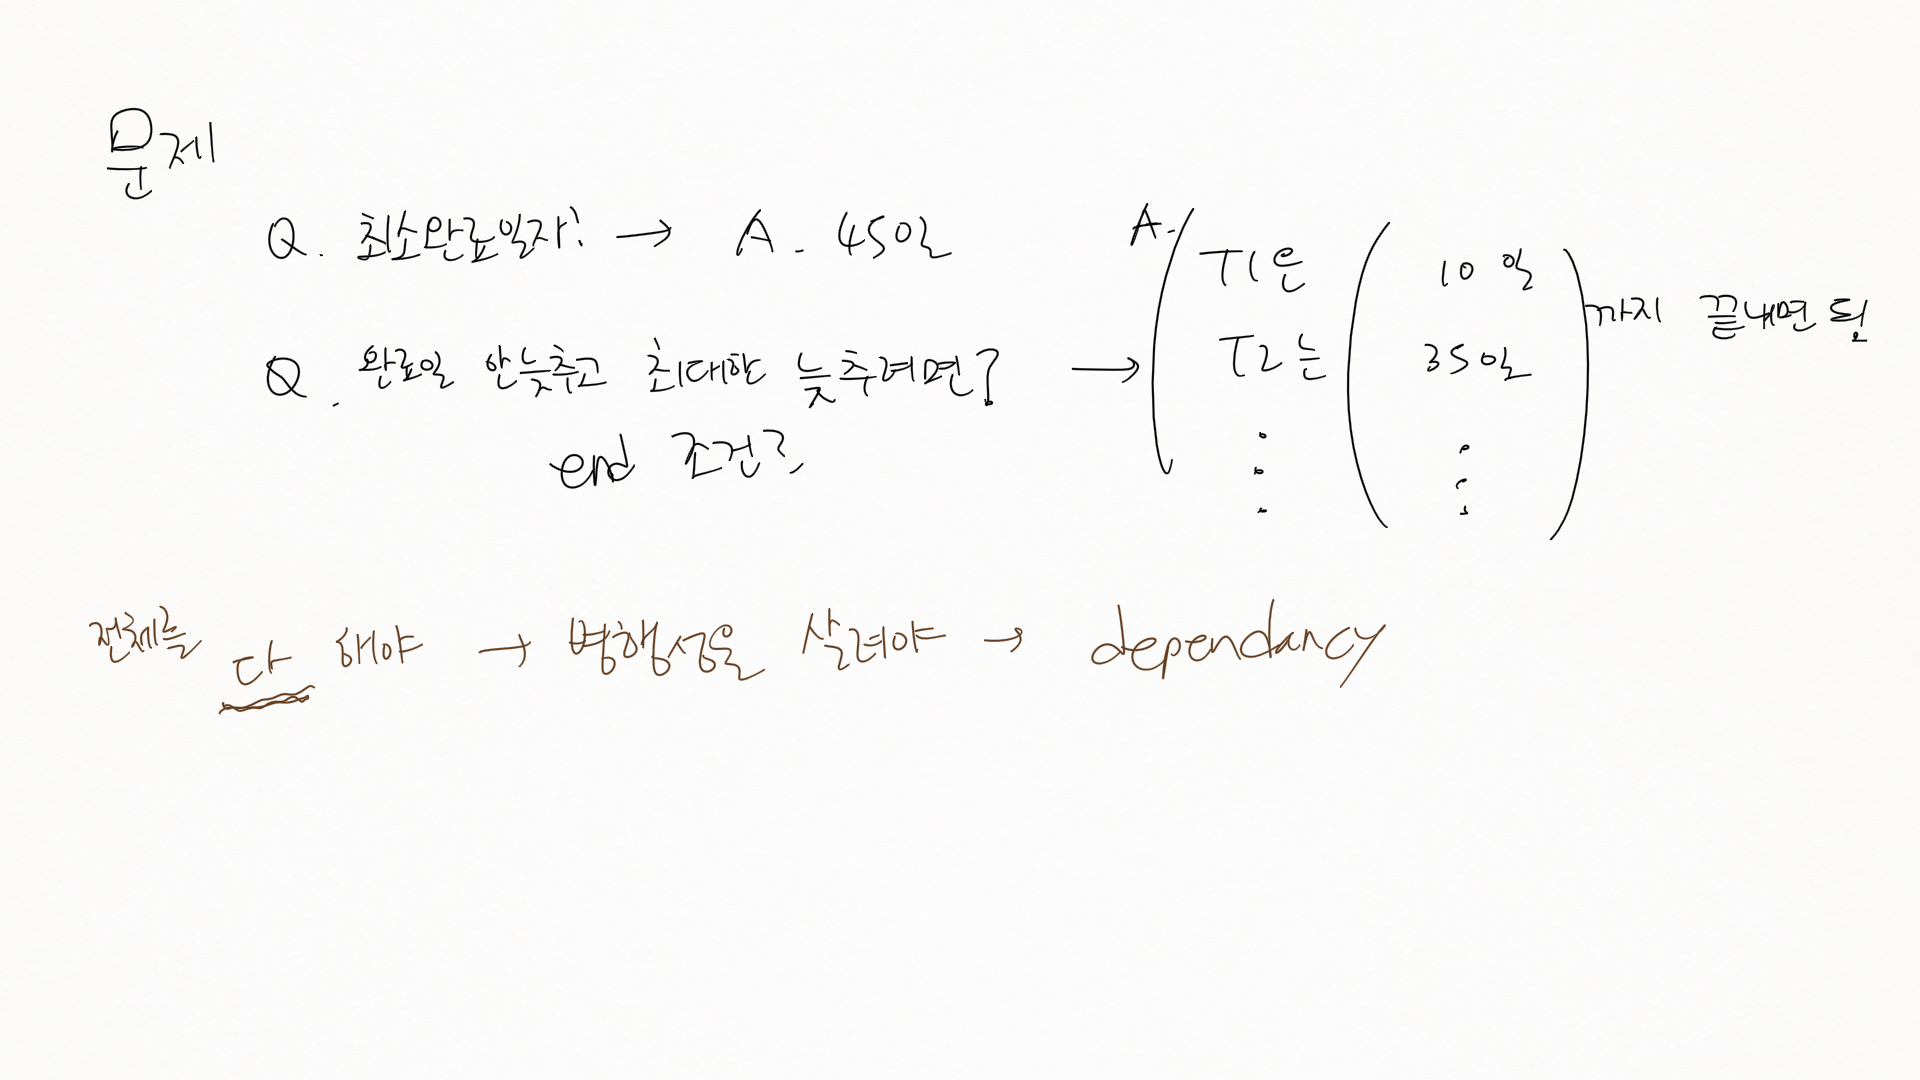 문제
Q. 최소완료일자? → A. 45일
Q. 완료일 안늦추고 최대한 늦추려면? →
end 조건?
A. T1은 10일
T2는 35일
까지 끝내면 됨
전체를 다 해야 → 병행성을 살려야 → dependancy